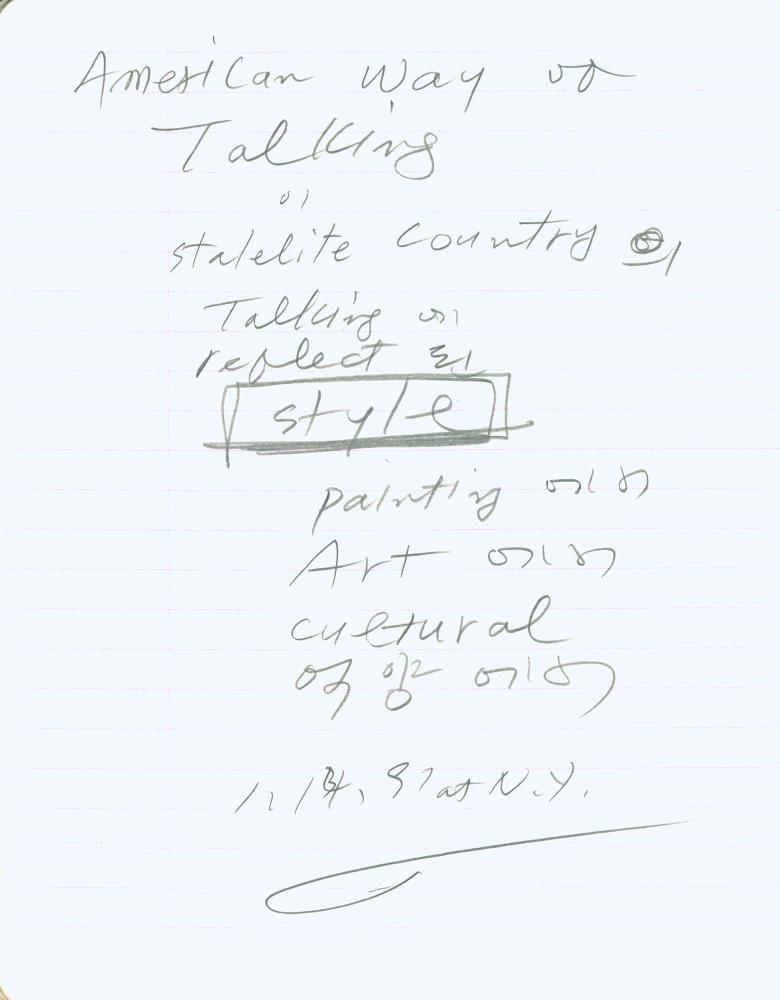 American Way of
Talking
이
statelite country 의
Talking 에
reflect 된
style
painting 에서
Art 에서
cultural
에서
at N.Y.